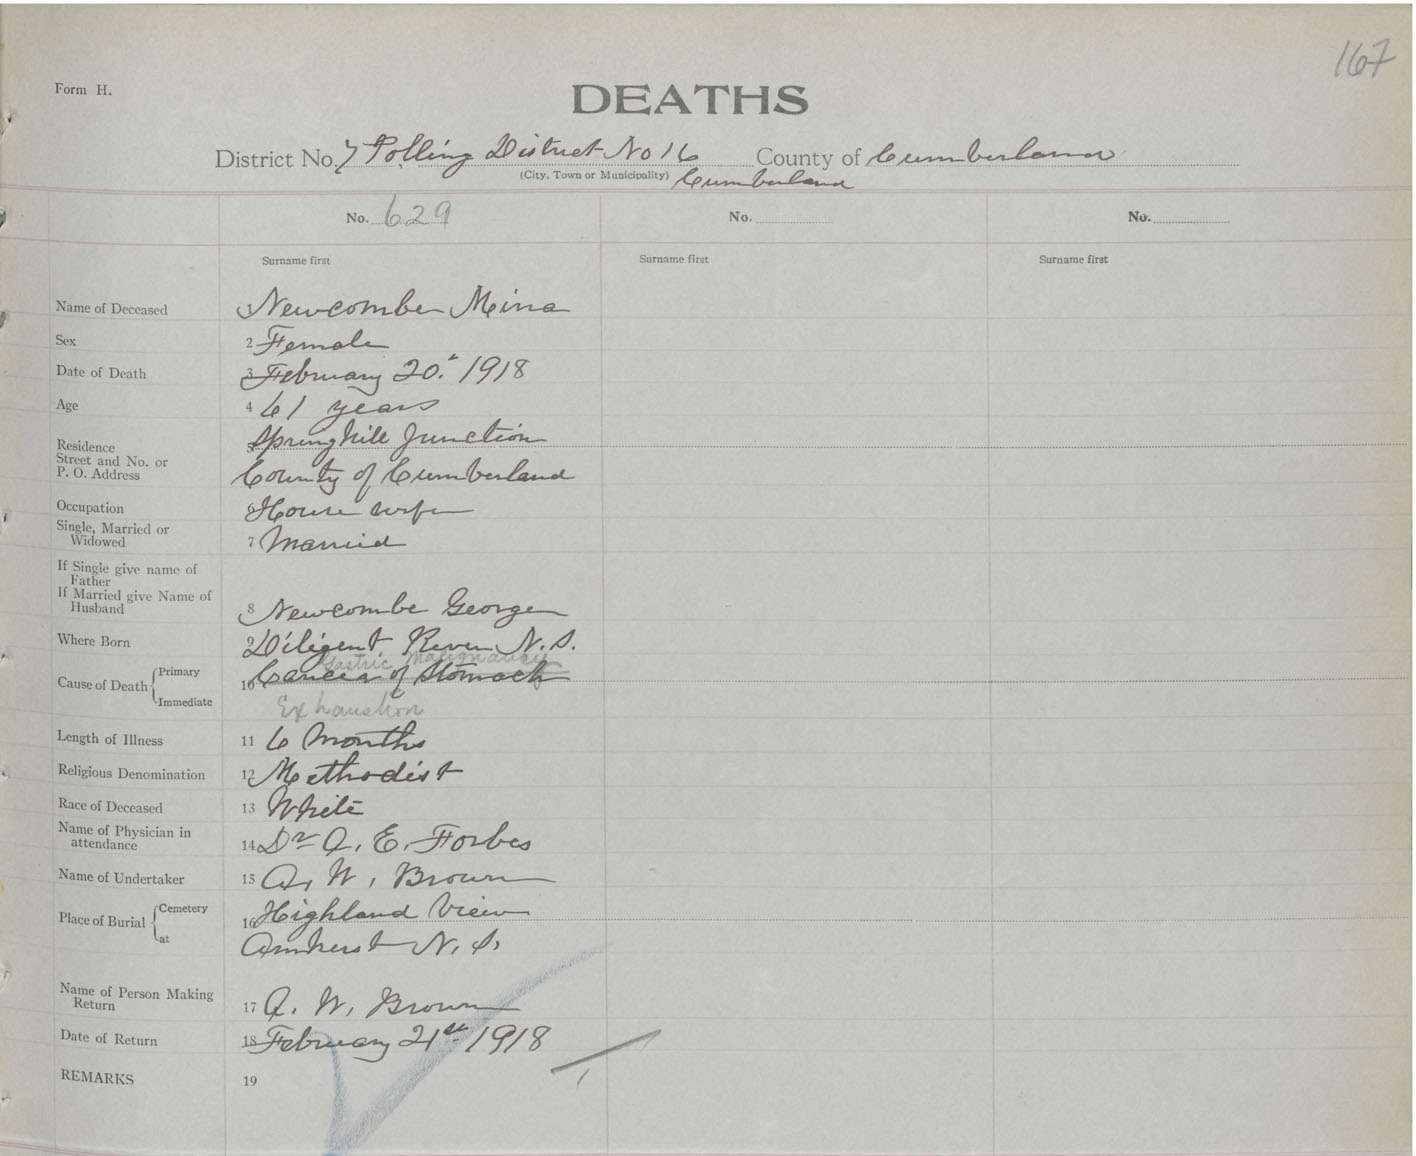 167
Form H.
DEATHS
District No. 7 Polling District No 16 County of Cumberland
(City, Town or Municipality) Cumberland
No. 629 No. No.
Surname first Surname first Surname first
Name of Deceased 1 Newcombe Mina
Sex 2 Female
Date of Death 3 February 20. 1918
Age 4 61 years
Residence
Street and No. or
P. O. Address
5 Springhill Junction
County of Cumberland
Occupation 6 House wife
Single, Married or
Widowed
7 Married
If Single give name of
Father
If Married give Name of
Husband
8 Newcombe George
Where Born 9 Diligent River N. S.
Gastric Malignancy
Cause of Death { Primary 10 Cancer of Stomach
Immediate Exhaustion
Length of Illness 11 6 Months
Religious Denomination 12 Methodist
Race of Deceased 13 White
Name of Physician in
attendance
14 Dr A. E. Forbes
Name of Undertaker 15 A. W. Brown
Place of Burial { Cemetery 16 Highland View
at Amherst N. S.
Name of Person Making
Return
17 A. W. Brown
Date of Return 18 February 21st 1918
REMARKS 19